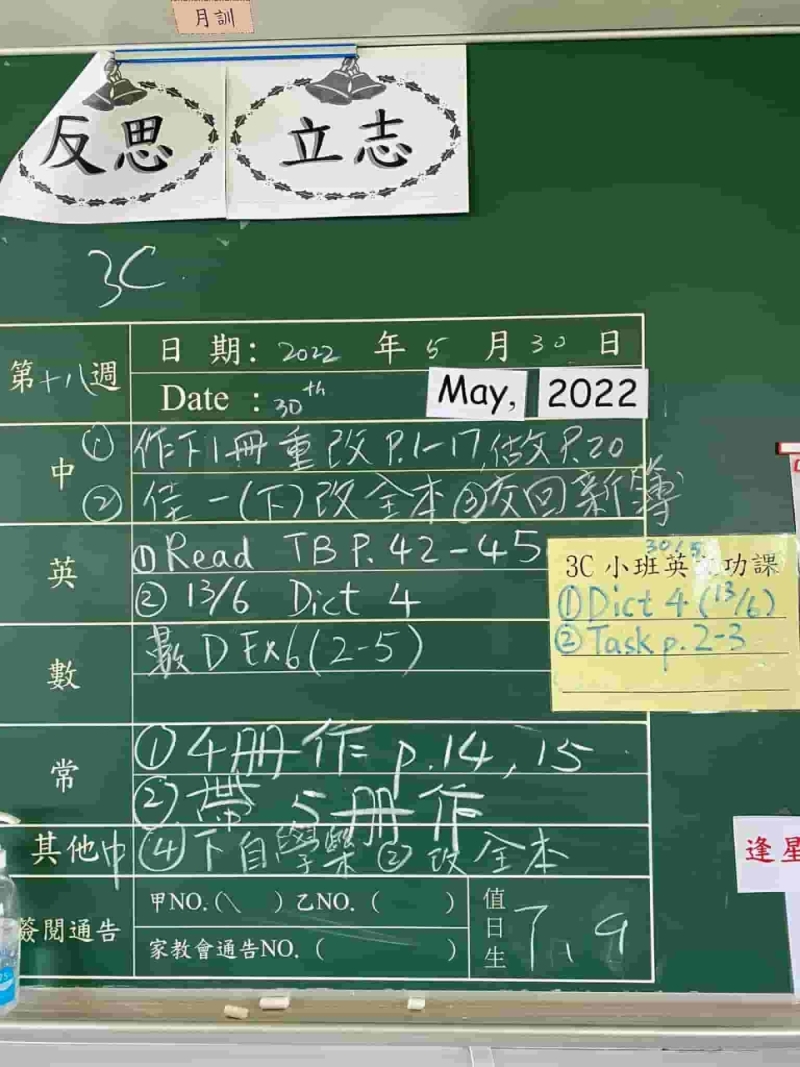 月訓
反思 立志
3C
第十八週
日 期: 2022 年 5 月 30 日
Date : 30th May, 2022
中 ① 作下1冊重改P.1-17,做文P.20
② 佳一(下)改全本③交回新簿
英 ① Read TB P. 42-45
② 13/6 Dict 4
30/5
3C 小班英 功課
① Dict 4 (13/6)
② Task p. 2-3
數 數D Ex6(2-5)
常 ① 4冊作 p.14, 15
② 帶 5冊作
其他 中 ④ 下自學樂② 改全本
簽閱通告 甲NO.(\ ) 乙NO. ( )
家教會通告NO. ( )
值日生 7、9
逢星